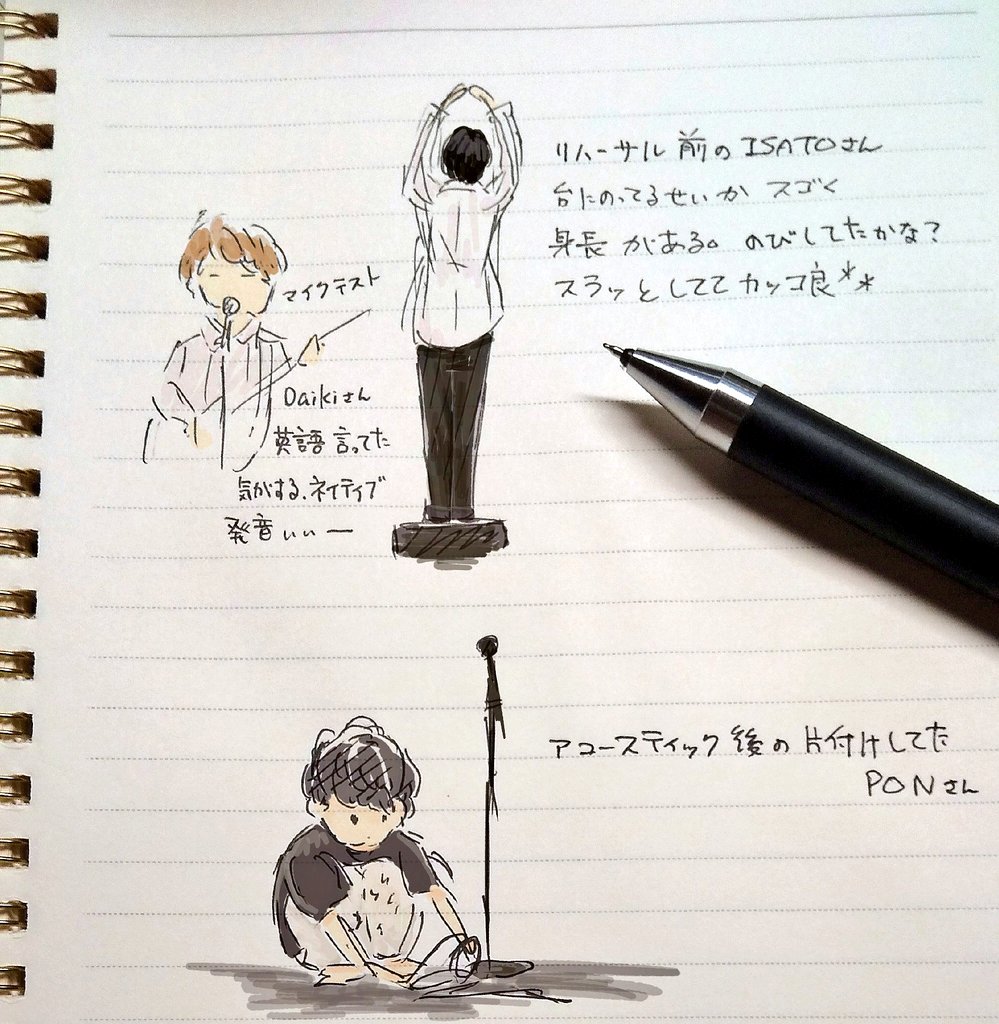 リハーサル 前の ISATOさん
台にのってるせいか スゴく
身長 がある。 のびしてたかな?
スラッと してて カッコ良**
マイクテスト
Daikiさん
英語 言ってた
気がする、ネイティブ
発音 ぃぃー
アコースティック 後の 片付けしてた
PONさん